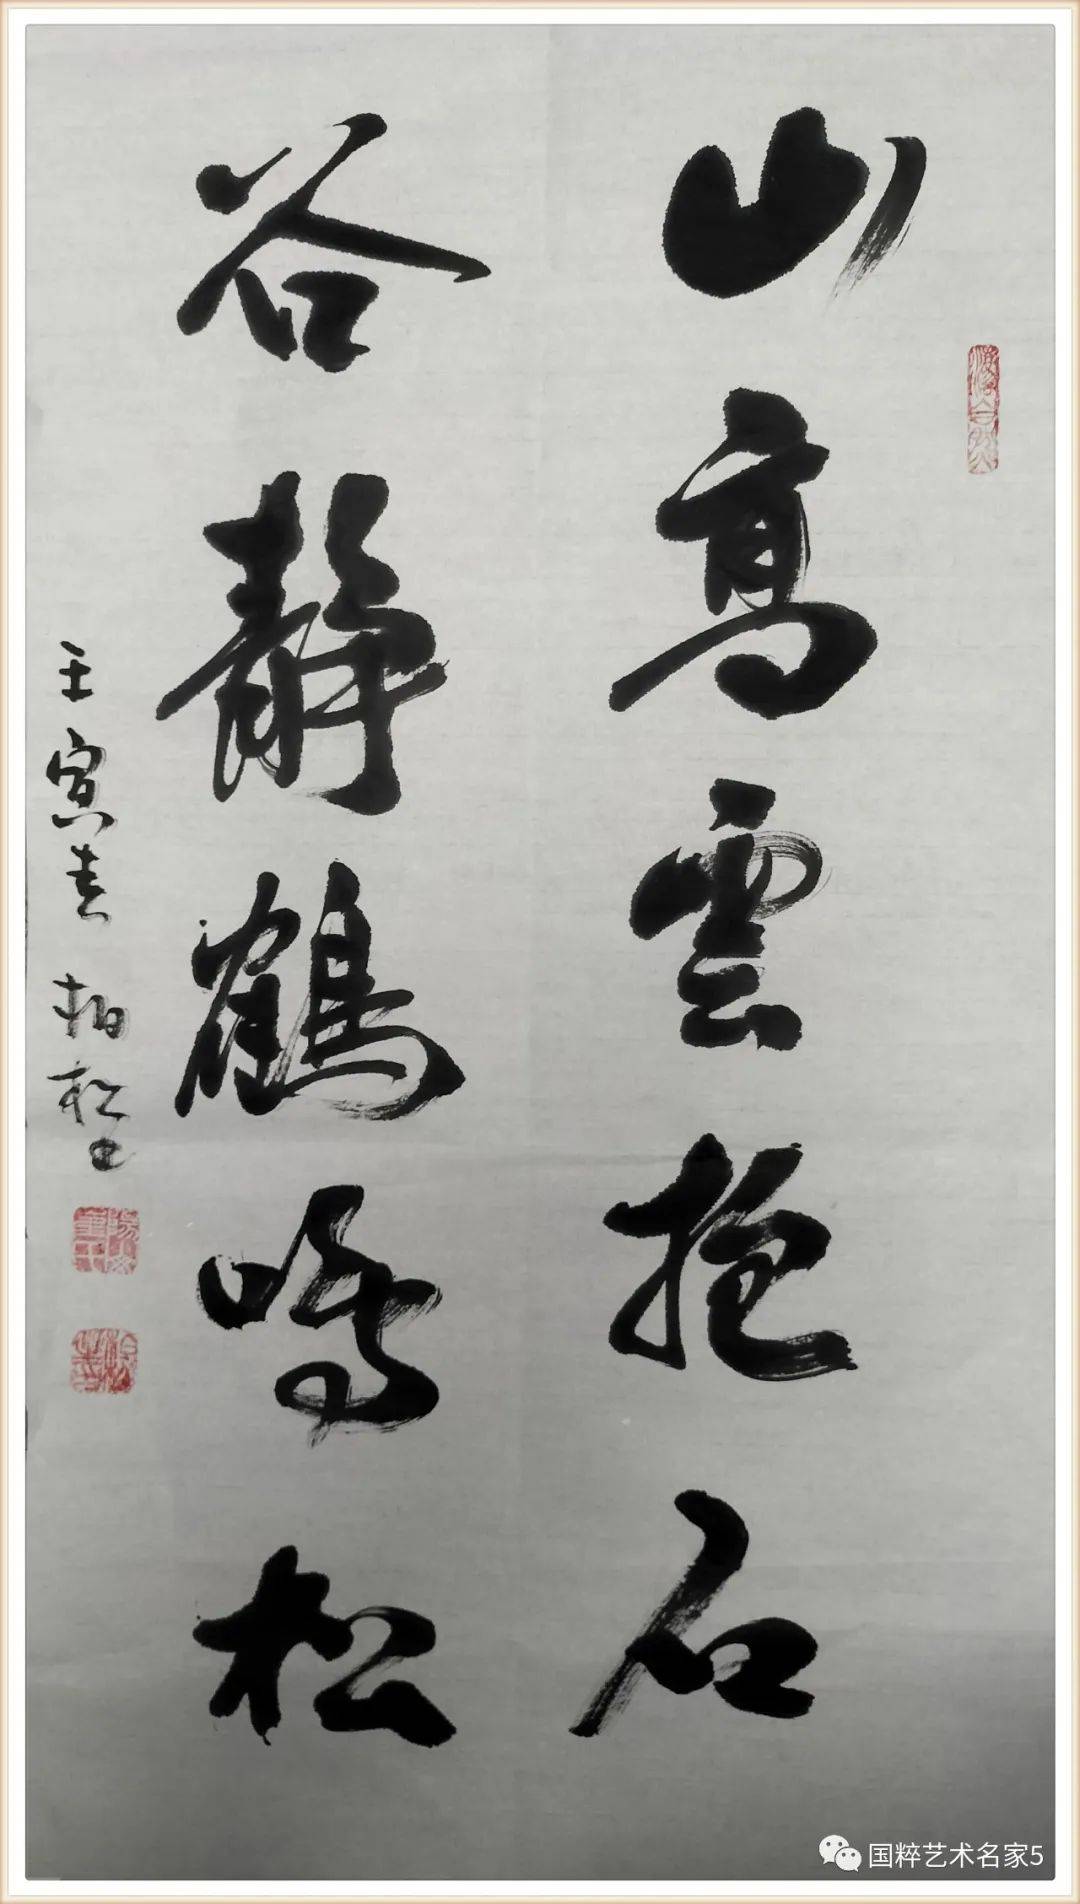 山高雲抱石
谷静鶴鳴松
壬寅春 柏松
国粹艺术名家5